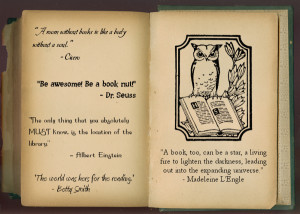 "A room without books is like a body
without a soul."
- Cicero
"Be awesome! Be a book nut!"
- Dr. Seuss
"The only thing that you absolutely
MUST know, is the location of the
library."
- Albert Einstein
"The world was hers for the reading."
- Betty Smith
"A book, too, can be a star, a living
fire to lighten the darkness, leading
out into the expanding universe."
- Madeleine L'Engle